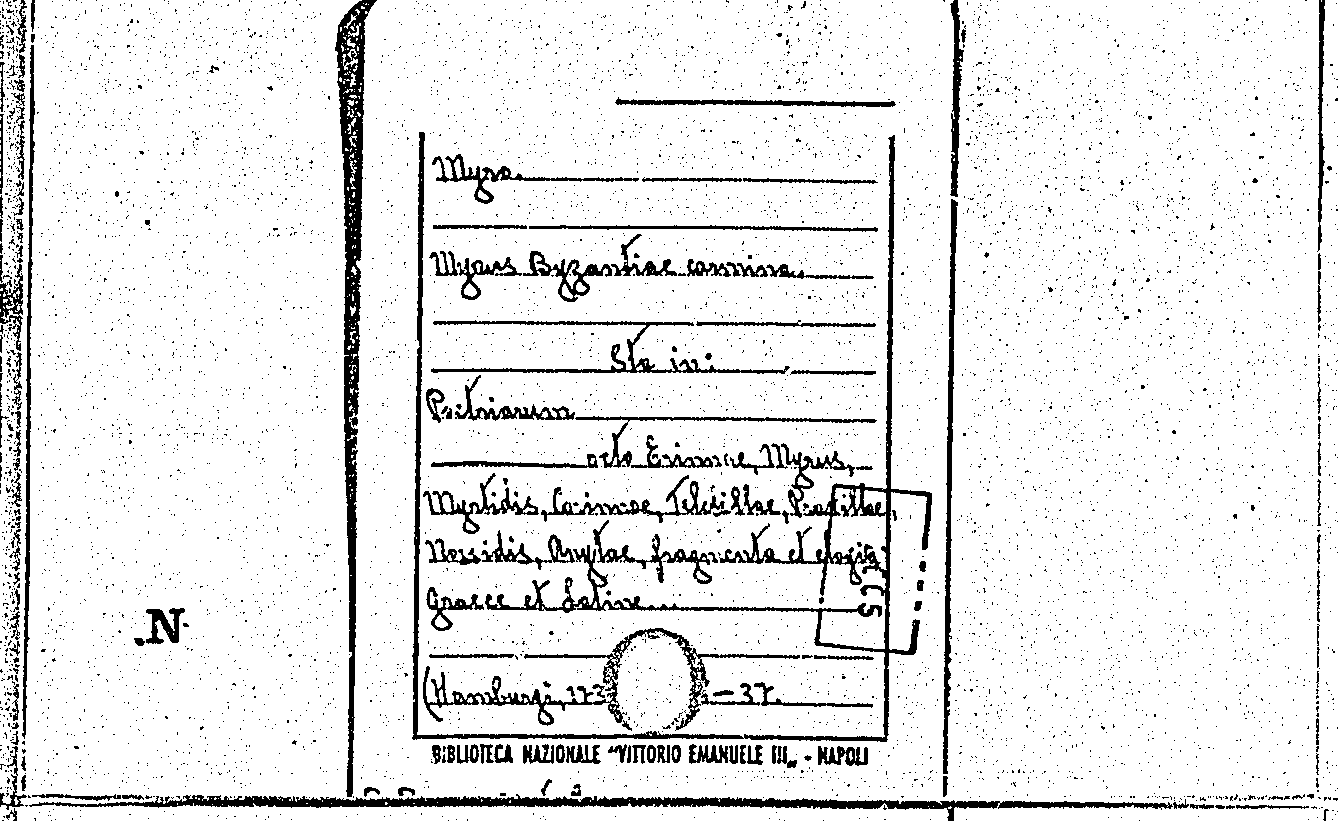 Myro.
Myrus Byzantiae carmina.
Sta in:
Poetriarum
octo Erinnae, Myrus,
Myrtidis, Corinnae, Telesillae, Praxillae,
Nossidis, Anytae, fragmenta et elogia
Graece et Latine...
.N
(Hamburgi, 173 — 37.
BIBLIOTECA NAZIONALE "VITTORIO EMANUELE III„ - NAPOLI